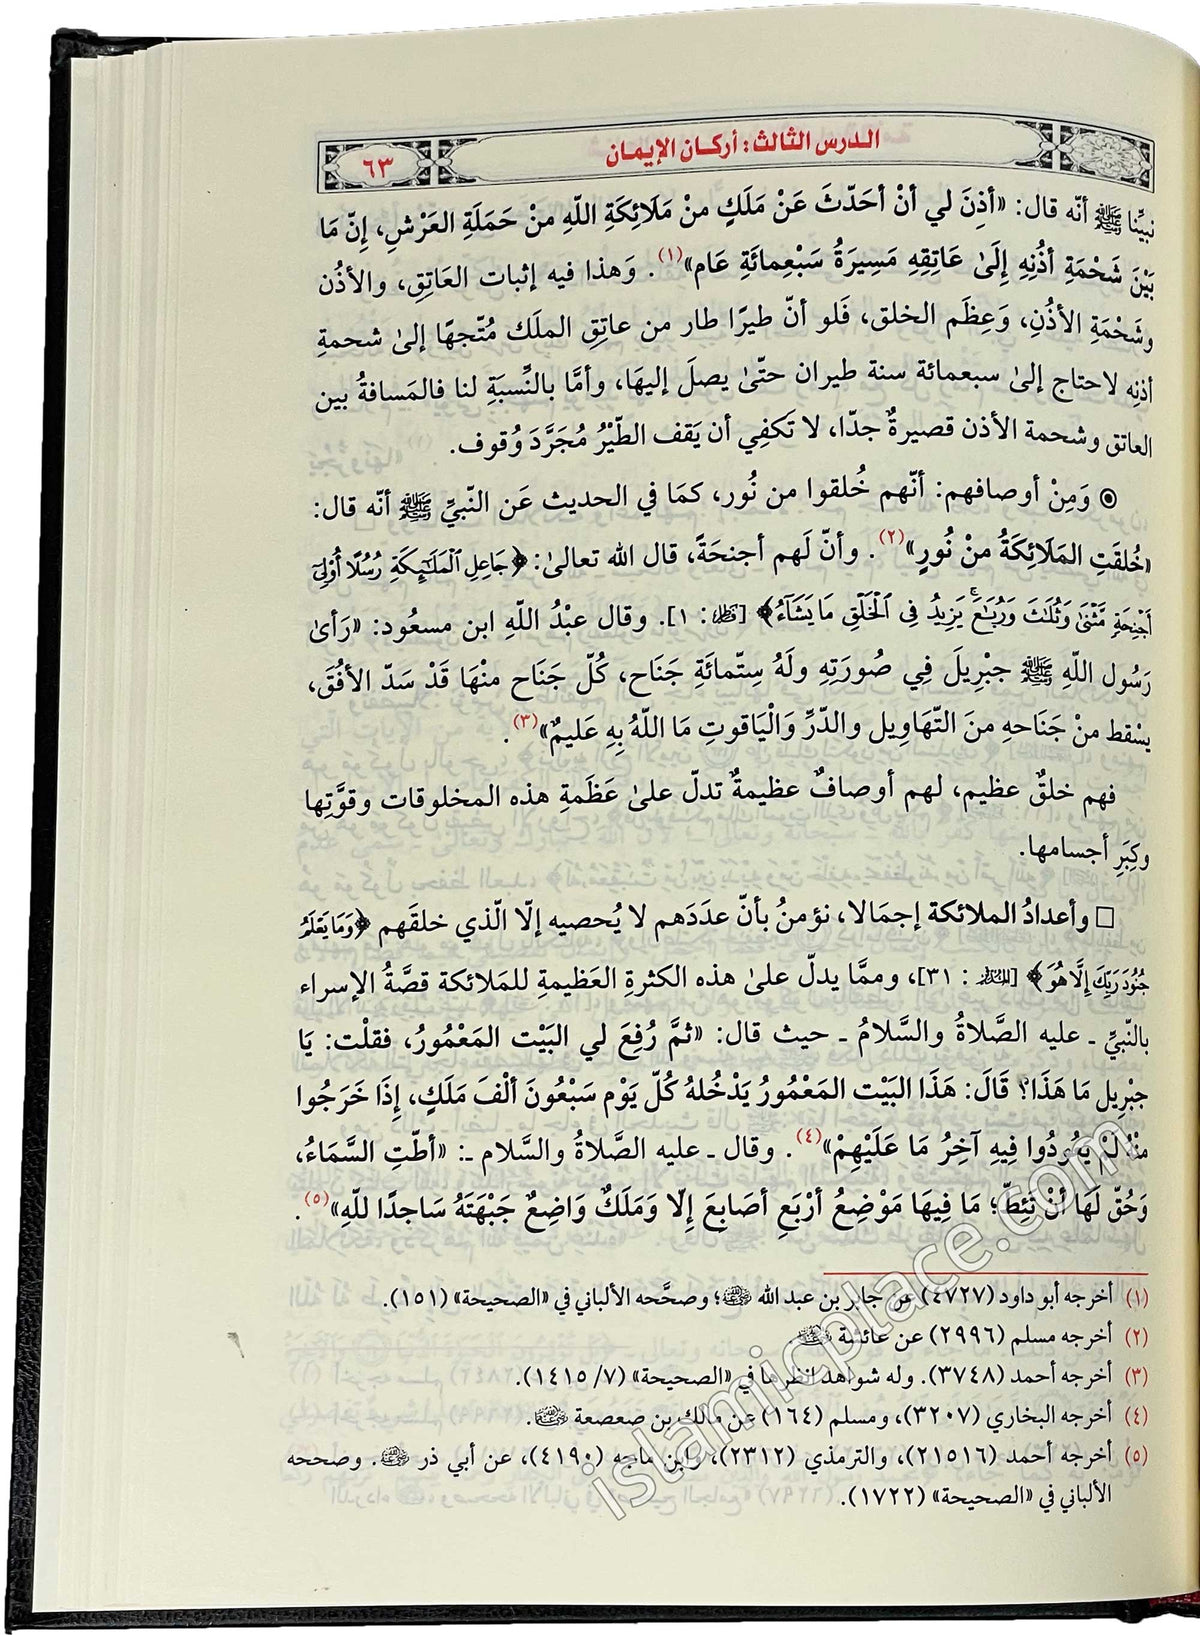 الدرس الثالث: أركان الإيمان
٦٣
نبيِّنا ﷺ أنّه قال: «أُذِنَ لي أنْ أُحَدِّثَ عَنْ مَلَكٍ مِنْ مَلَائِكَةِ اللّهِ مِنْ حَمَلَةِ العَرْشِ، إِنّ مَا
بَيْنَ شَحْمَةِ أُذُنِهِ إِلَىٰ عَاتِقِهِ مَسِيرَةُ سَبْعِمائَةِ عَام»(١). وَهذا فيه إثبات العَاتِقِ، والأذُن
وشَحْمَةِ الأذُنِ، وَعِظَم الخلق، فَلو أنّ طيرًا طار من عاتِقِ الملَك مُتّجهًا إلىٰ شحمةِ
أذنِه لاحتاج إلىٰ سبعمائة سنة طيران حتّىٰ يصلَ إليهَا، وأمَّا بالنِّسبَةِ لنا فالمَسافةُ بين
العاتق وشحمة الأذن قصيرةٌ جدّا، لا تَكفِي أن يَقف الطّيْرُ مُجَرَّدَ وُقوف.
◉ وَمِنْ أوصافهم: أنّهم خُلقوا من نُور، كمَا في الحديث عَن النّبيِّ ﷺ أنّه قال:
«خُلقَتِ المَلَائِكَةُ مِنْ نُورٍ»(٢). وأنّ لَهم أجنحَةً، قال الله تعالىٰ: ﴿جَاعِلِ ٱلْمَلَـٰٓئِكَةِ رُسُلًا أُو۟لِىٓ
أَجْنِحَةٍ مَّثْنَىٰ وَثُلَـٰثَ وَرُبَـٰعَ ۚ يَزِيدُ فِى ٱلْخَلْقِ مَا يَشَآءُ﴾ [فاطر: ١]. وقال عبْدُ اللّهِ ابن مسعُود: «رَأىٰ
رَسُول اللّهِ ﷺ جبْرِيلَ فِي صُورَتِهِ ولَهُ ستّمائَةِ جَنَاح، كُلّ جَنَاح منْهَا قَدْ سَدّ الأفُقَ،
يسْقط منْ جَنَاحهِ منَ التّهَاوِيل والدّرِّ وَالْيَاقوتِ مَا اللّهُ بِهِ عَليمٌ»(٣).
فهم خلقٌ عظيم، لهم أوصافٌ عظيمةٌ تدلّ علىٰ عَظَمةِ هذه المخلوقات وقوَّتِها
وكِبَرِ أجسامها.
□ وأعدادُ الملائكة إجمَالا، نؤمنُ بأنّ عدَدَهم لا يُحصيه إلّا الّذي خلقَهم ﴿وَمَا يَعْلَمُ
جُنُودَ رَبِّكَ إِلَّا هُوَ﴾ [المدثر: ٣١]، وممَّا يدلّ علىٰ هذه الكثرةِ العَظيمةِ للمَلائكة قصَّةُ الإسراء
بالنّبيِّ ـ عليه الصَّلاةُ والسَّلامُ ـ حيث قال: «ثمَّ رُفِعَ لي البَيْت المَعْمُورُ، فقلْت: يَا
جبْرِيل مَا هَذَا؟ قَالَ: هَذَا البَيْت المَعْمُورُ يَدْخُلهُ كُلّ يَوْم سَبْعُونَ ألْفَ مَلَكٍ، إِذَا خَرَجُوا
منْهُ لَمْ يعُودُوا فِيهِ آخِرُ مَا عَلَيْهِمْ»(٤). وقال ـ عليه الصَّلاةُ والسَّلام ـ: «أطّتِ السَّمَاءُ،
وَحُقّ لَهَا أنْ تَئِطّ؛ مَا فِيهَا مَوْضِعُ أرْبَعِ أصَابِعَ إِلّا وَمَلَكٌ وَاضِعٌ جَبْهَتَهُ سَاجدًا للّهِ»(٥).
(١) أخرجه أبو داود (٤٧٢٧) عن جابر بن عبد الله ﵁؛ وصحَّحه الألباني في «الصحيحة» (١٥١).
(٢) أخرجه مسلم (٢٩٩٦) عن عائشة ﵂.
(٣) أخرجه أحمد (٣٧٤٨). وله شواهد انظرها في «الصحيحة» (٧/ ١٤١٥).
(٤) أخرجه البخاري (٣٢٠٧)، ومسلم (١٦٤) عن مالك بن صعصعة ﵁.
(٥) أخرجه أحمد (٢١٥١٦)، والترمذي (٢٣١٢)، وابن ماجه (٤١٩٠)، عن أبي ذر ﵁. وصححه
الألباني في «الصحيحة» (١٧٢٢).
islamicplace.com